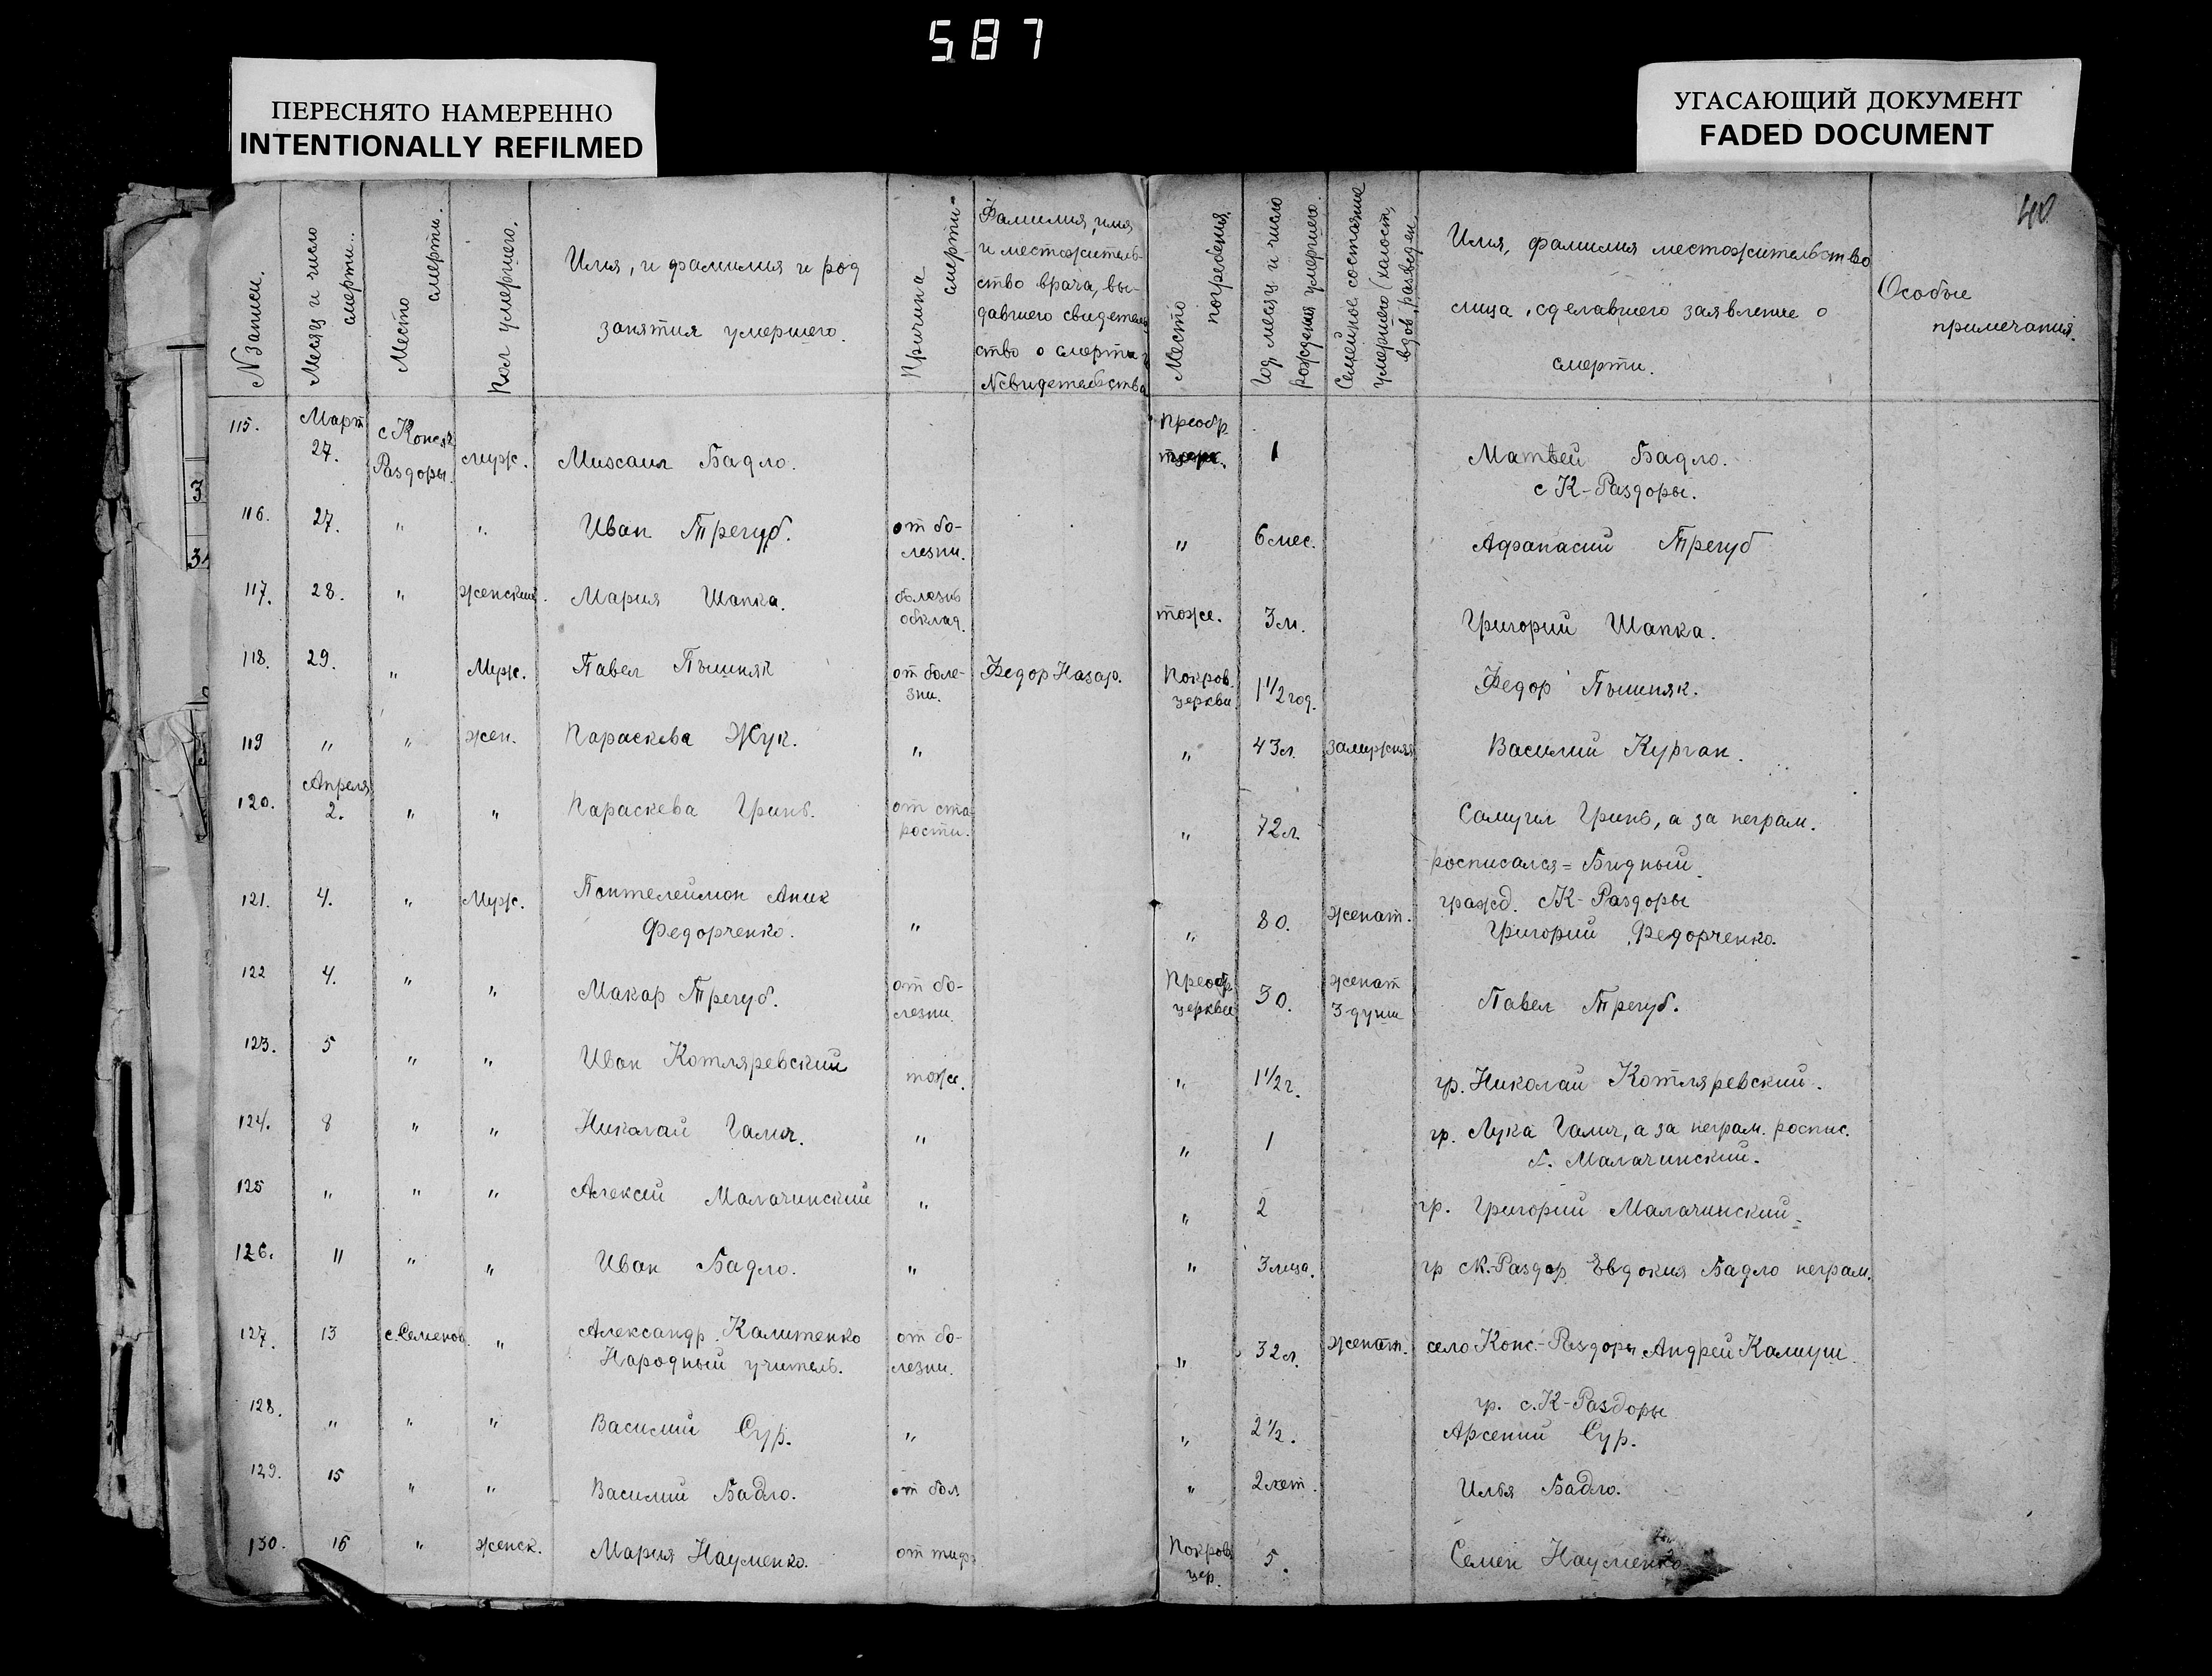 587
ПЕРЕСНЯТО НАМЕРЕННО
INTENTIONALLY REFILMED
УГАСАЮЩИЙ ДОКУМЕНТ
FADED DOCUMENT
40
N записи.
Месяц и число смерти.
Место смерти.
Пол умершего.
Имя, и фамилия и род
занятия умершего.
Причина смерти
Фамилия, имя
и местожитель-
ство врача, вы-
давшего свидетель
ство о смерти и
N свидетельства
Место погребения.
Год, месяц и число рождения умершего.
Семейное состояние умершего (холост, вдов, разведен,
Имя, фамилия местожительство
лица, сделавшего заявление о
смерти.
Особые
примечания.
115. Март 27. с Конск Раздоры. муж. Михаил Бадло. Преобр 1 Матвей Бадло.
с К-Раздоры.
116. 27. " " Иван Трегуб. от бо-лезни. " 6 мес. Афанасий Трегуб
117. 28. " женский. Мария Шапка. болезнь обклад. тоже. 3 м. Григорий Шапка.
118. 29. " Муж. Павел Пъшняк от боле-зни. Федор Назар. Покров. церкви 1 1/2 год. Федор Пъшняк.
119 " " жен. Параскева Жук. " " 43 л. замужняя Василий Курган.
120. Апреля 2. " " Параскева Гринь. от ста рости. " 72 л. Самуил Гринь, а за неграм.
росписался = Бидный.
121. 4. " Муж. Пантелеймон Аник
Федорченко. " " 80. женат. гражд. с К-Раздоры
Григорий Федорченко.
122 4. " " Макар Трегуб. от бо-лезни. Преобр. церкви 30. женат 3 души Павел Трегуб.
123. 5 " " Иван Котляревский тоже. " 1 1/2 г. гр. Николай Котляревский.
124. 8 " " Николай Галич. " " 1 гр. Лука Галич, а за неграм. роспис.
Г. Малачинский.
125 " " " Алексий Малачинский " " 2 гр. Григорий Малачинский.
126. 11 " " Иван Бадло. " " 3 мца. гр с К.-Раздор Евдокия Бадло неграм.
127. 13 с. Семенов. " Александр Калитенко
Народный учитель. от бо-лезни. " 32 л. женат. село Конс.-Раздоры Андрей
128. " " " Василий Сур. " " 2 1/2. гр. с. К-Раздоры
Арсений Сур.
129. 15 " " Василий Бадло. от бол. " 2 лет. Илья Бадло.
130. 16 " женск. Мария Науменко. от тиф Покров. цер. 5. Семен Науменко